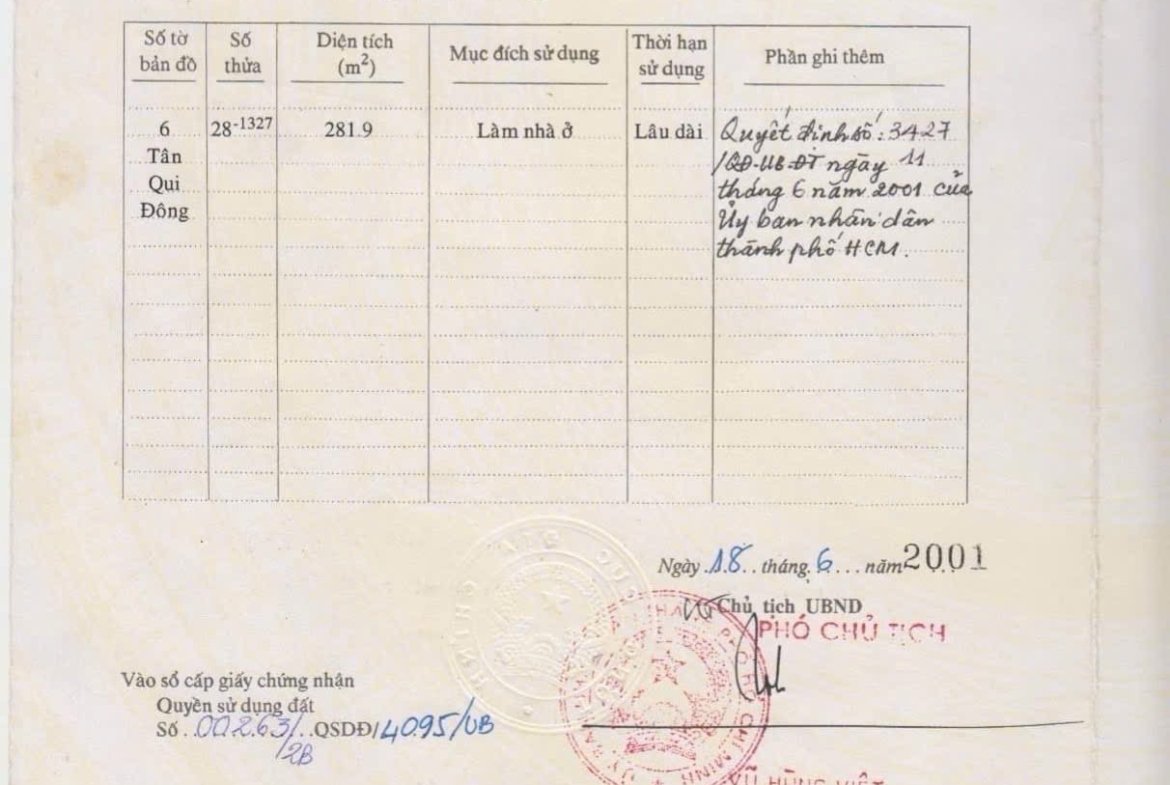 Số tờ bản đồ
Số thửa
Diện tích (m²)
Mục đích sử dụng
Thời hạn sử dụng
Phần ghi thêm
6
Tân
Qui
Đông
28-1327
281.9
Làm nhà ở
Lâu dài
Quyết định số: 3427
/QĐ-UB-ĐT ngày 11
tháng 6 năm 2001 của
Ủy ban nhân dân
thành phố HCM.
Ngày 18 tháng 6 năm 2001
KT Chủ tịch UBND
PHÓ CHỦ TỊCH
Vào sổ cấp giấy chứng nhận
Quyền sử dụng đất
Số 00263/ QSDĐ/4095/UB
2B
VŨ HÙNG VIỆT